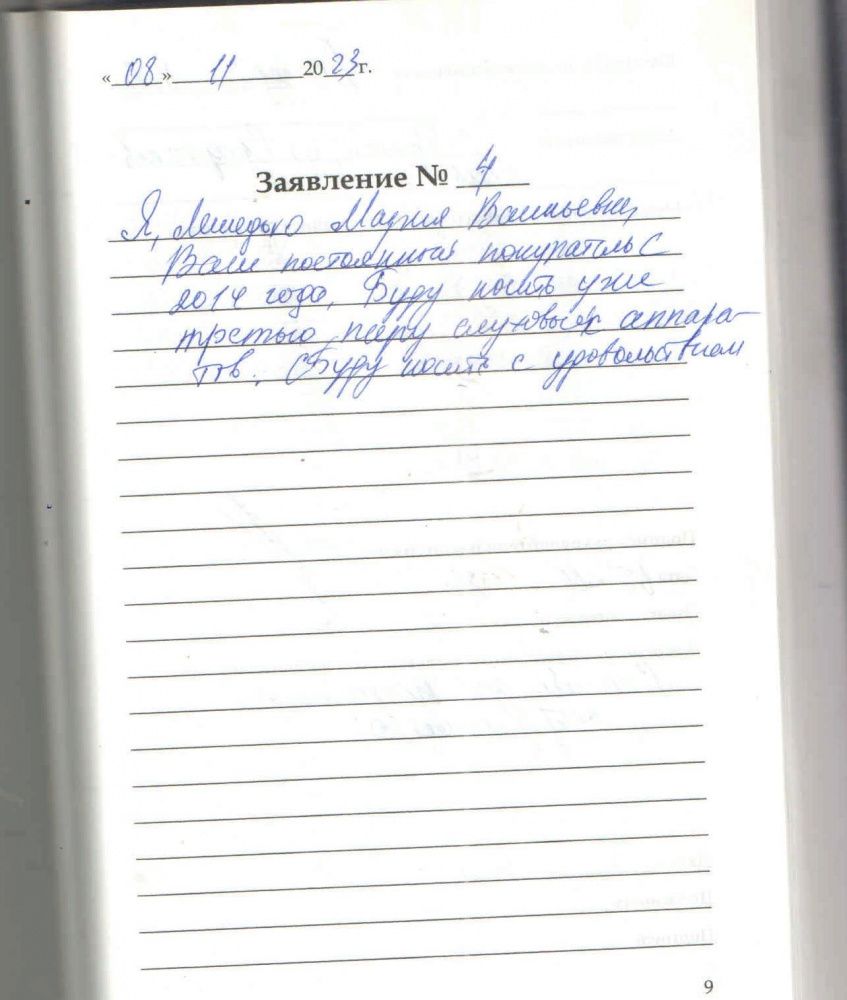 « 08 » 11 2023 г.
Заявление № 4
Я, Лешедько Мария Васильевна,
Ваш постоянный покупатель с
2014 года, Буду носить уже
третью пару слуховых аппара-
тов. Буду носить с удовольствием
9